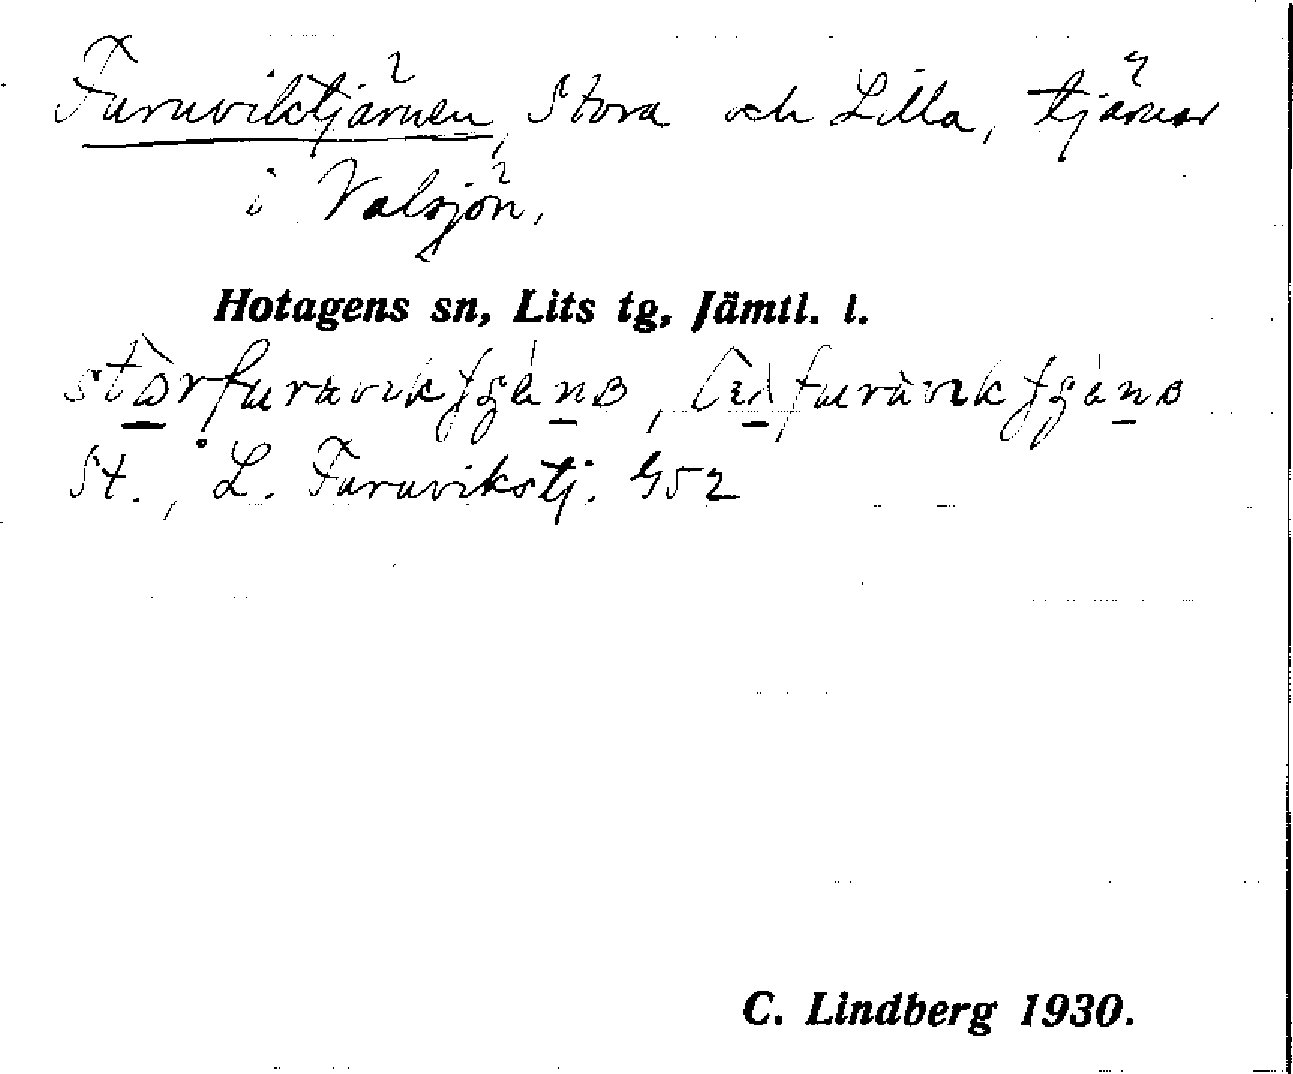 Furuviktjärnen, Stora och Lilla, tjärnar
i Valsjön.
Hotagens sn, Lits tg, Jämtl. l.
St., L. Furuvikstj. G52
C. Lindberg 1930.